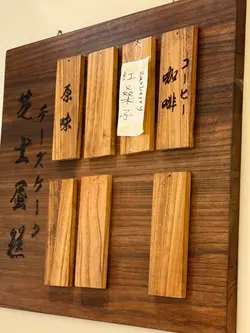 芝士蛋糕
チーズケーキ
原味
紅桑子
コーヒー
咖啡